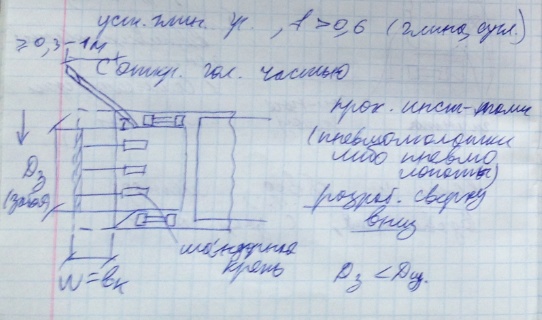 уст. глин. гр., f > 0,6 (глина, сугл.)
≥ 0,3-1м
С откр. гол. частью
прох. инст-ами
(пневмомолотки
либо пневмо
лопаты)
разраб. сверху
вниз
Dз
(забоя)
шандорная
крепь
W = вк
Dз < Dщ.